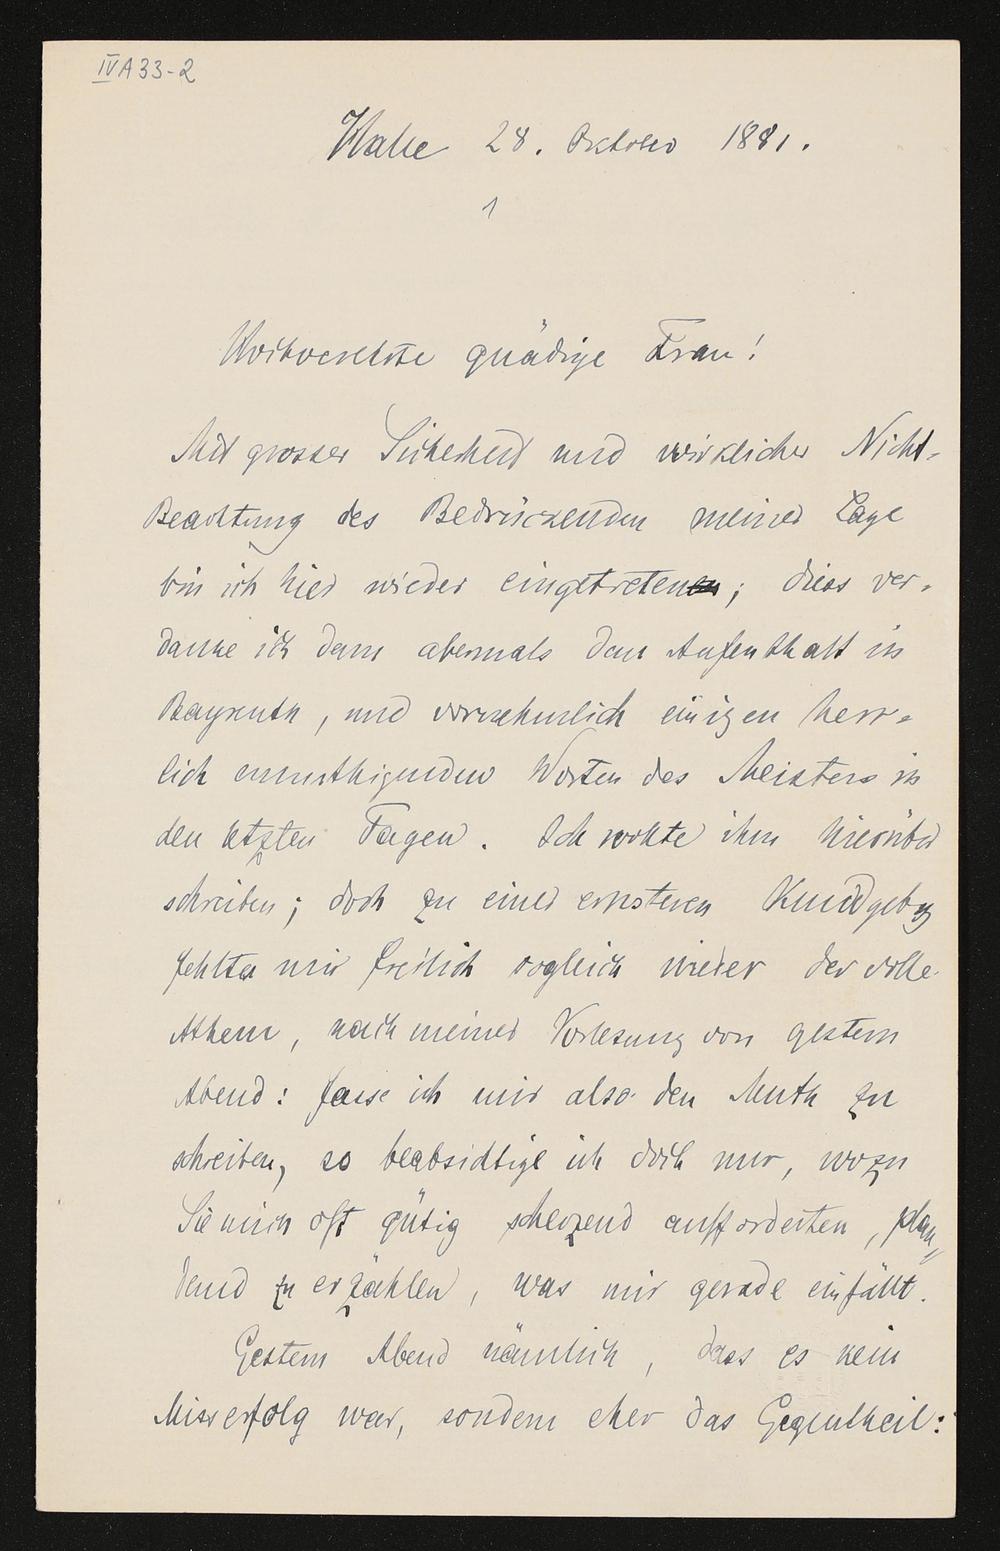 IV A 33-2
Halle 28. Oktober 1881.
1
Hochverehrte gnädige Frau!
Mit grosser Sicherheit und wirklicher Nicht-
Beachtung des Bedrückenden meiner Lage
bin ich hier wieder eingetreten; dies ver-
danke ich denn abermals dem Aufenthalt in
Bayreuth, und vornehmlich einigen herr-
lich ermuthigenden Worten des Meisters in
den letzten Tagen. Ich wollte ihm hierüber
schreiben; doch zu einer ernsteren Kundgebg
fehlte mir freilich sogleich wieder der volle
Athem, nach meiner Vorlesung von gestern
Abend: fasse ich mir also den Muth zu
schreiben, so beabsichtige ich doch nur, wozu
Sie mich oft gütig scherzend aufforderten, plau-
dernd zu erzählen, was mir gerade einfällt.
Gestern Abend nämlich, dass es kein
Misserfolg war, sondern eher das Gegentheil: